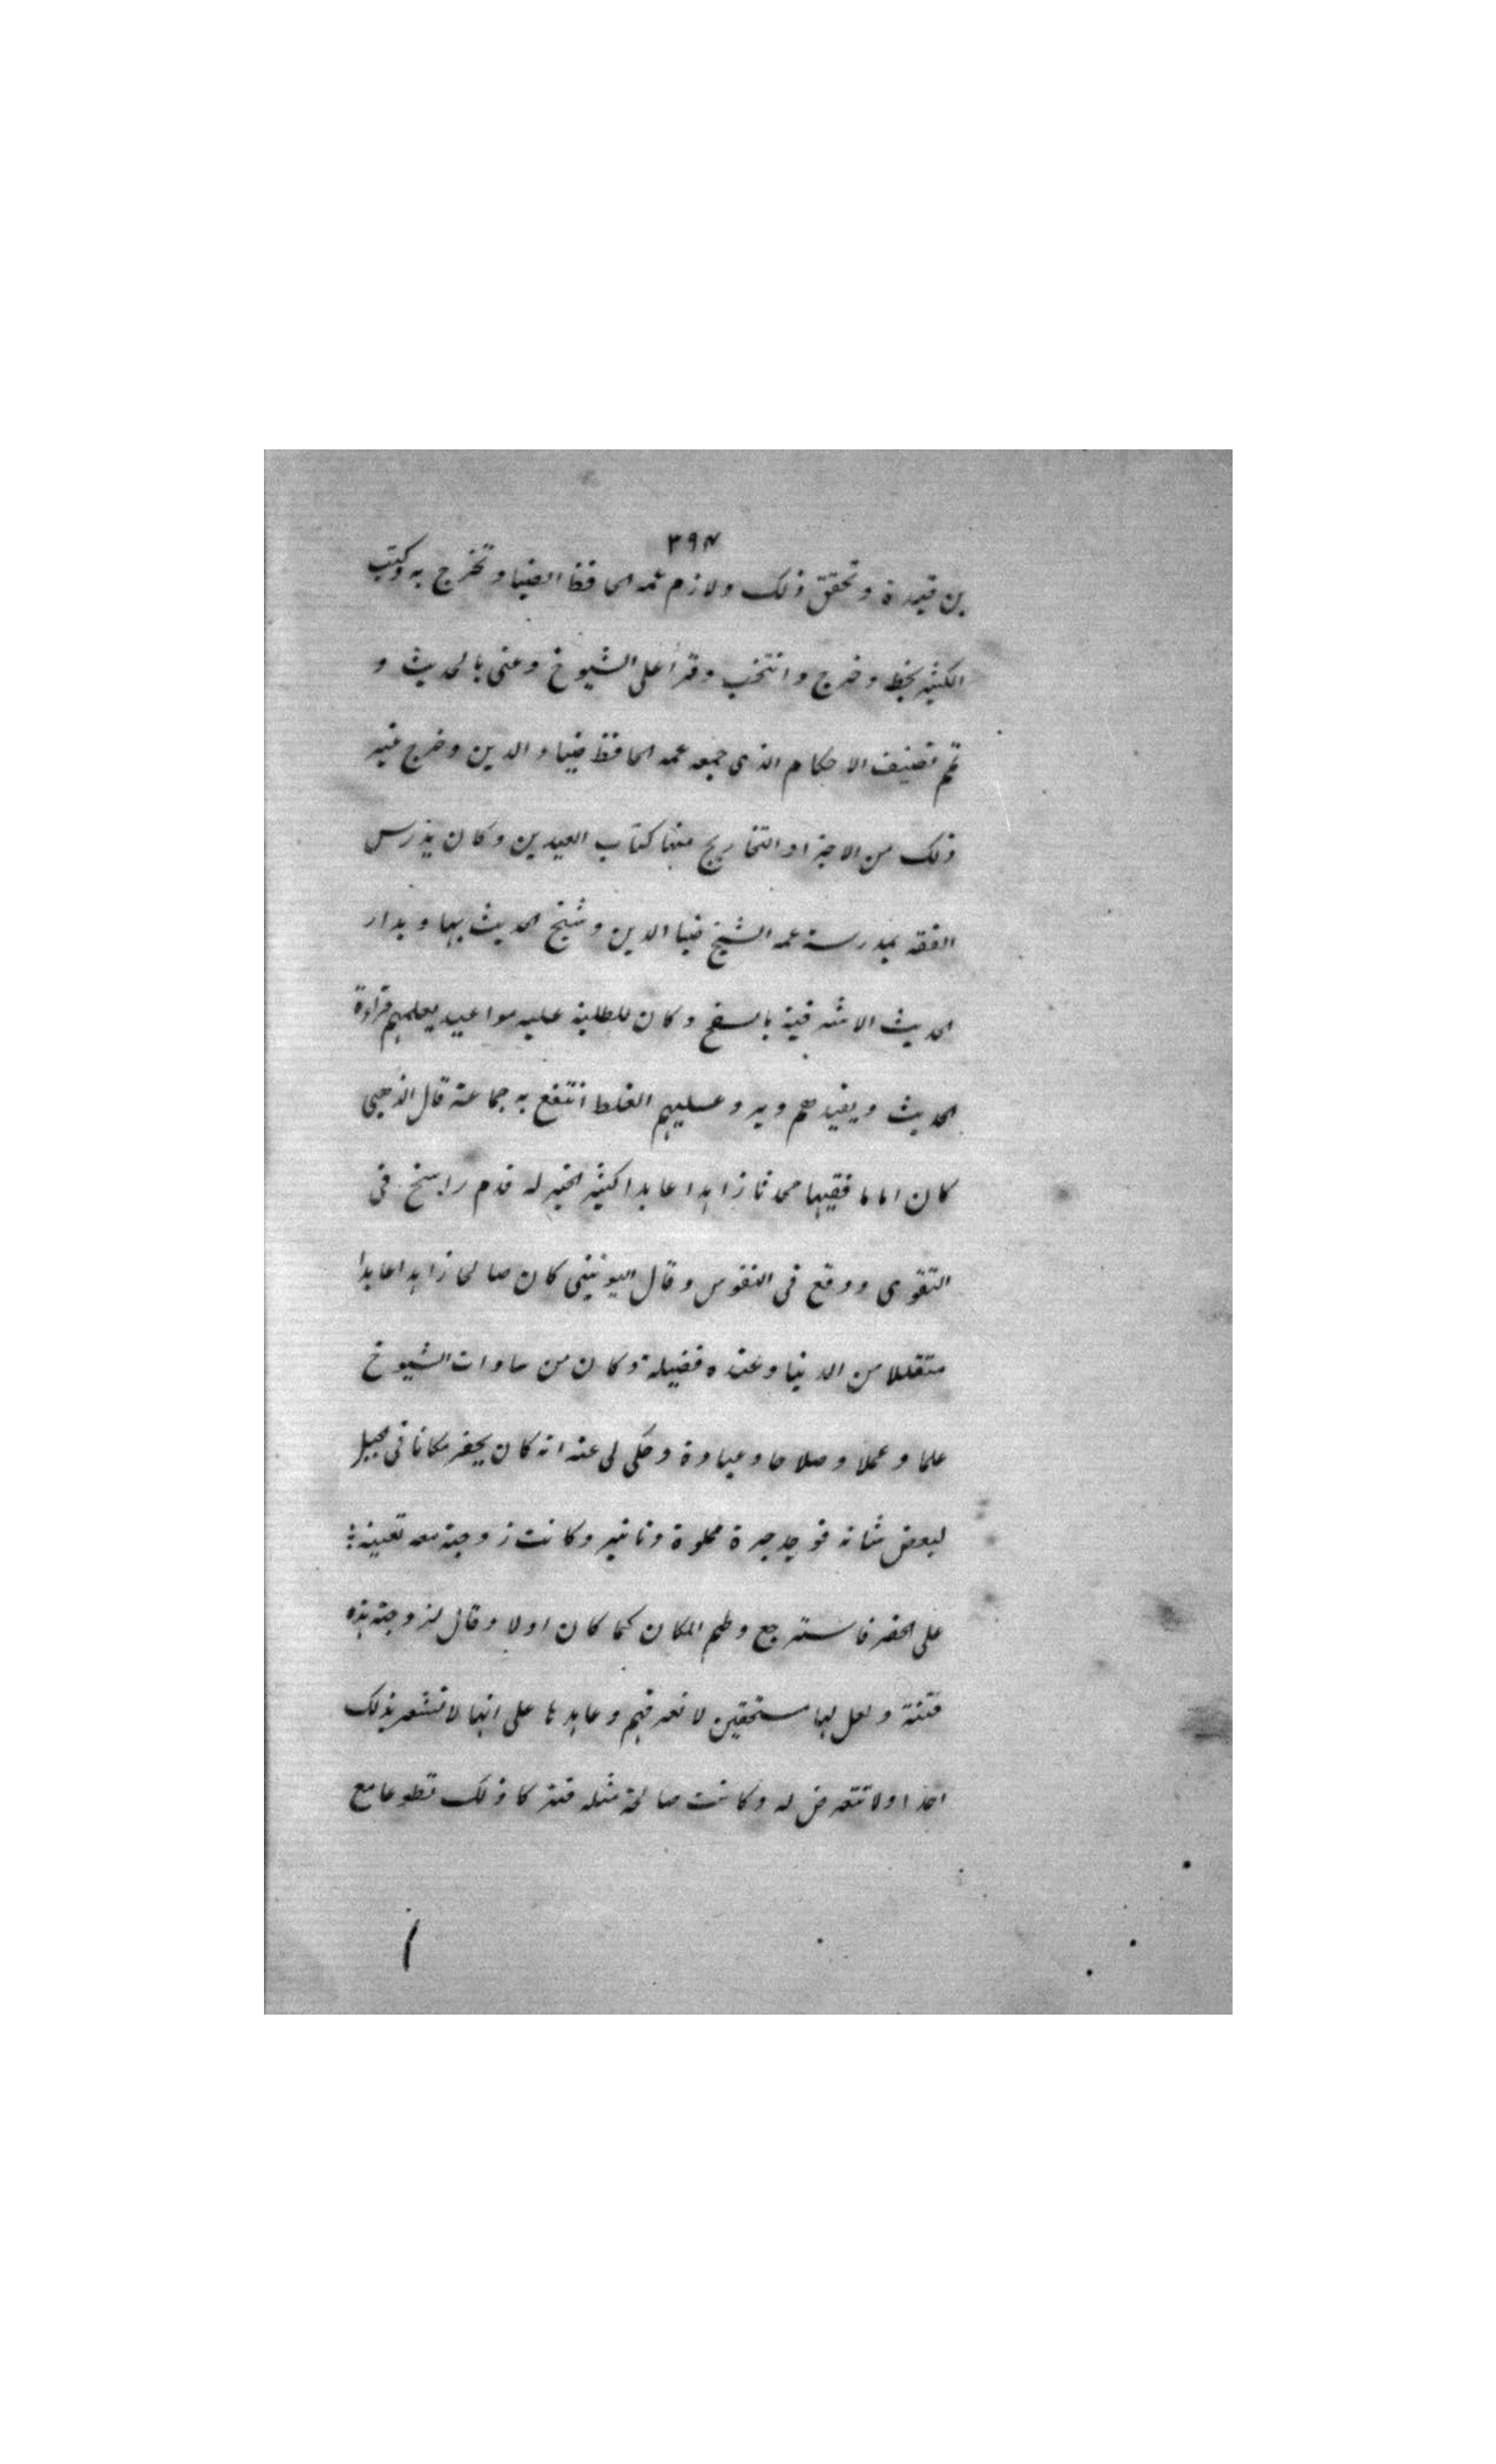 ٣٩٨
بن قيمرة و تحقق ذلك ولازم عمه الحافظ الضيا و تخرج به وكتب
الكثير بخط و خرج و انتخب وقرأ على الشيوخ وعنى بالحديث و
تم تصنيف الاحكام الذى جمعه عمه الحافظ ضياء الدين و خرج غير
ذلك من الاجزاء والتخاريج منها كتاب العيدين و كان يدرس
الفقه بمدرسة عمه الشيخ ضيا الدين و شيخ الحديث بها و بدار
الحديث الاشرفية بالسفح و كان للطلبة عليه مواعيد يعلمهم قراءة
الحديث و يفيدهم ويرد عليهم الغلط انتفع به جماعة قال الذهبى
كان اماما فقيها محدثا زاهدا عابدا كثير الخير له قدم راسخ فى
التقوى ووقع فى النفوس وقال اليونينى كان صالحا زاهدا عابدا
متقللا من الدنيا وعنده فضيلة وكان من سادات الشيوخ
علما و عملا و صلاحا و عبادة و حكى لى عنه انه كان يحفر مكانا فى جبل
لبعض شانه فوجد جرة مملوة دنانير وكانت زوجته معه تعينه
على الحفر فاسترجع وطم المكان كما كان اولا وقال لزوجته هذه
فتنة و لعل لها مستحقين لا نعرفهم و عاهدها على انها لا تشعر بذلك
احدا ولا تتعرض له وكانت صالحة مثله فتركا ذلك تطوعا مع